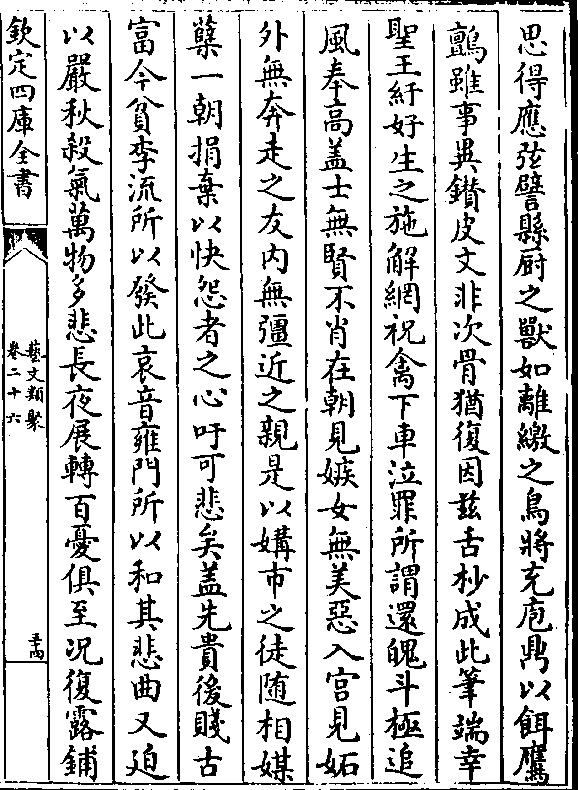 思得應弦譬縣厨之獸如離繳之鳥將充庖鼎以餌鷹
鸇雖事異鑚皮文非次骨猶復因兹舌杪成此筆端幸
聖王紆好生之施解網祝禽下車泣罪所謂還魄斗極追
風奉高蓋士無賢不肖在朝見嫉女無美惡入宫見妬
外無奔走之友内無彊近之親是以媾市之徒随相媒
糵一朝捐棄以快怨者之心吁可悲矣蓋先貴後賤古
富今貧李流所以發此哀音雍門所以和其悲曲又廹
以嚴秋殺氣萬物多悲長夜展轉百憂俱至况復露鋪
欽定四庫全書
藝文類聚
卷二十六
五十四